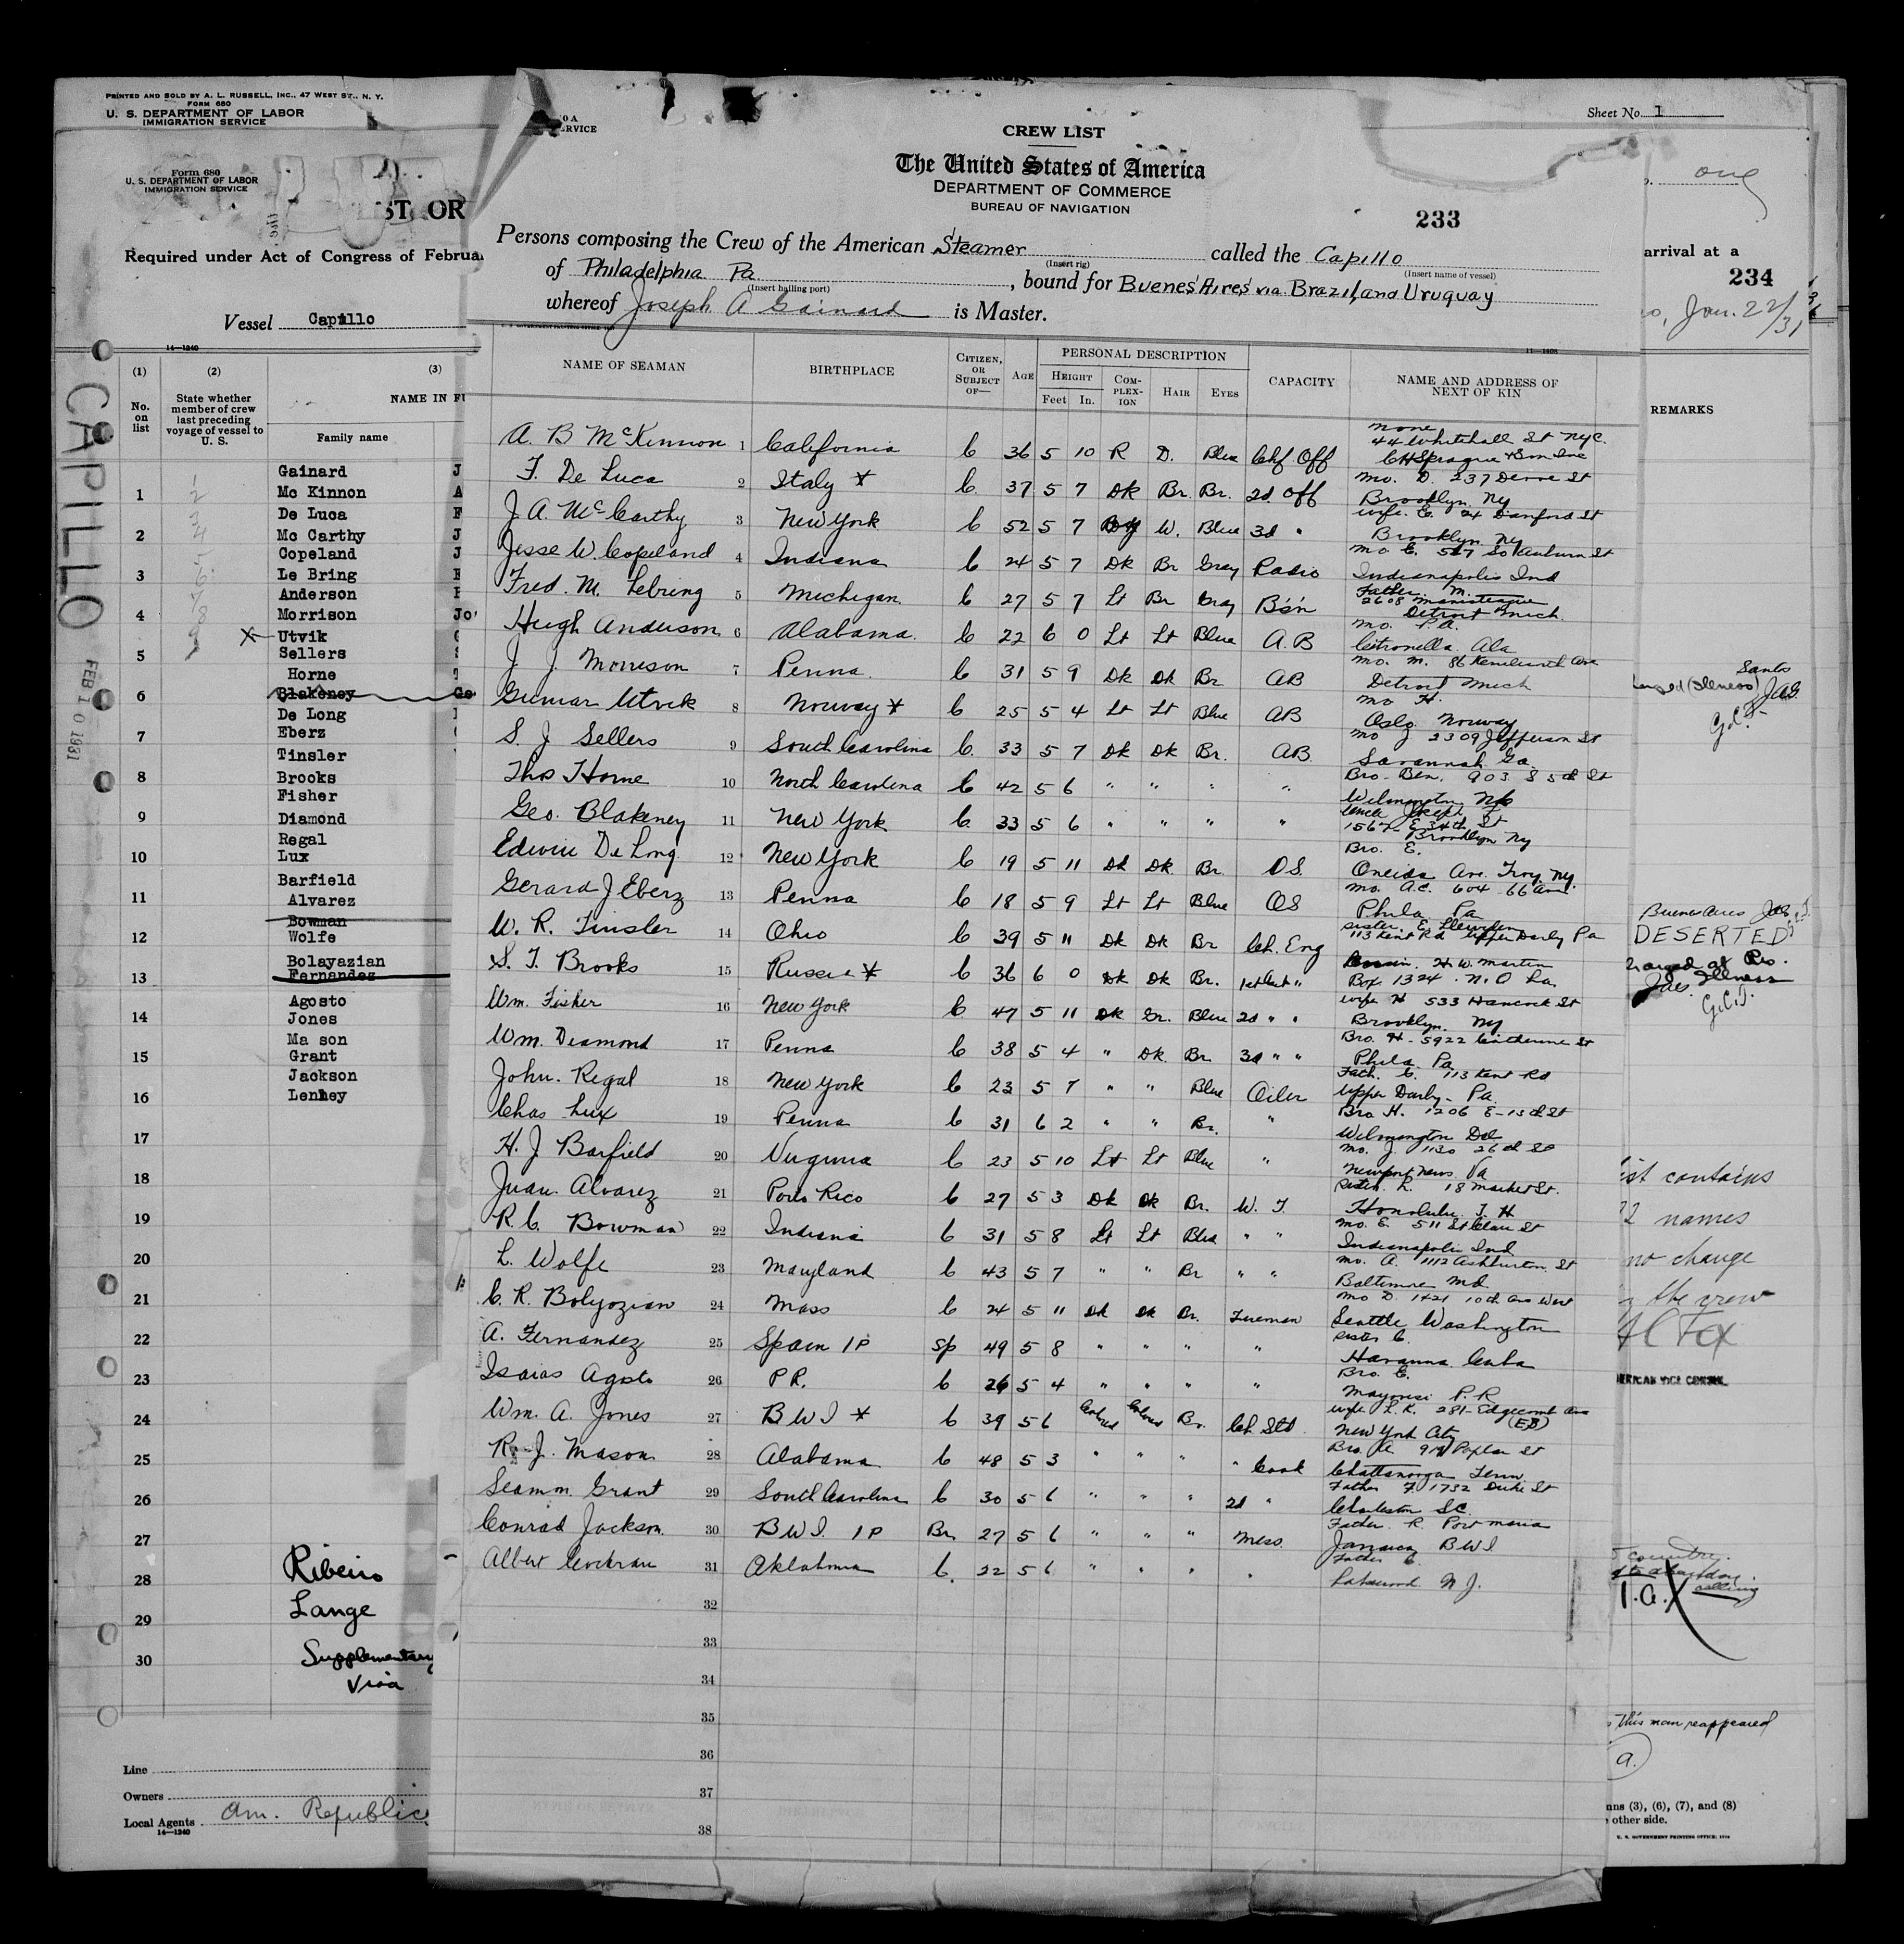 PRINTED AND SOLD BY A. L. RUSSELL, INC., 47 WEST ST., N. Y.
FORM 680
U. S. DEPARTMENT OF LABOR
IMMIGRATION SERVICE
Form 680
U. S. DEPARTMENT OF LABOR
IMMIGRATION SERVICE
IST OR
Required under Act of Congress of Februa
Vessel Capillo
14—1240
(1) (2) (3)
No. on list
State whether member of crew last preceding voyage of vessel to U. S.
NAME IN FU
Family name
CAPILLO
FEB 10 1931
Gainard J
1 Mc Kinnon A
De Luca F
2 Mc Carthy J
Copeland J
3 Le Bring
Anderson
4 Morrison Jo
X Utvik
5 Sellers
Horne
6 Blakeney Ge
De Long
7 Eberz
Tinsler
8 Brooks
Fisher
9 Diamond
Regal
10 Lux
Barfield
11 Alvarez
Bowman
12 Wolfe
Bolayazian
13 Fernandez
Agosto
14 Jones
Ma son
15 Grant
Jackson
16 Lenhey
17
18
19
20
21
22
23
24
25
26
27
28 Ribeiro
29 Lange
30 Supplementary
Visa
Line
Owners
Local Agents Am. Republics
14—1240
0 A
ERVICE
CREW LIST
The United States of America
DEPARTMENT OF COMMERCE
BUREAU OF NAVIGATION
233
Persons composing the Crew of the American Steamer called the Capillo
(Insert rig) (Insert name of vessel)
of Philadelphia Pa, bound for Buenes Aires via Brazil, and Uruguay
(Insert hailing port)
whereof Joseph A Gainard is Master.
NAME OF SEAMAN BIRTHPLACE CITIZEN, OR SUBJECT OF— AGE PERSONAL DESCRIPTION CAPACITY NAME AND ADDRESS OF NEXT OF KIN
HEIGHT COMPLEXION HAIR EYES
Feet In.
none
44 Whitehall St NYC
A. B McKinnon 1 California C 36 5 10 R D. Blue Chf Off CH Sprague & Son Inc
mo. D. 237 St
F. De Luca 2 Italy * C. 37 5 7 Dk Br. Br. 2d Off Brooklyn Ny
wife. E. 24 Danford St
J. A. McCarthy 3 New York C 52 5 7 W. Blue 3d " Brooklyn Ny
mo E. 527 So Auburn St
Jesse W. Copeland 4 Indiana C 24 5 7 Dk Br Gray Radio Indianapolis Ind
Father M.
2608
Fred. M. Lebring 5 Michigan C 27 5 7 Lt Br Gray Bs'n Detroit Mich.
mo.
Hugh Anderson 6 Alabama. C 22 6 0 Lt Lt Blue A.B Citronella Ala
mo. M. 86 Kenilworth Ave
J. J. Morrison 7 Penna. C 31 5 9 Dk Dk Br AB Detroit Mich
mo H.
Gunnar Utvik 8 Norway * C 25 5 4 Lt Lt Blue AB Oslo Norway
mo J 2309 Jefferson St
S. J Sellers 9 South Carolina C. 33 5 7 Dk Dk Br. AB. Savannah Ga
Bro- Ben. 903 S 5th St
Thos Horne 10 North Carolina C 42 5 6 " " " " Wilmington NC
Uncle Joseph F
1567 E 34th St
Geo. Blakeney 11 New York C. 33 5 6 " " " " Brooklyn Ny
Bro. E.
Edwin De Long 12 New York C 19 5 11 Dk Dk Br OS. Oneida Ave. Troy Ny.
mo. A.C. 604 66 Ave
Gerard J Eberz 13 Penna C 18 5 9 Lt Lt Blue OS Phila Pa
sister. E.
W. R. Tinsler 14 Ohio C 39 5 11 Dk Dk Br Ch. Eng 113 Kent Rd Upper Darby Pa
H. W. Martin
S. T. Brooks 15 Russia * C 36 6 0 Dk Dk Br. 1st Asst " Box 1324. N. O La.
wife H 533 Hancock St
Wm. Fisher 16 New York C 47 5 11 Dk Gr. Blue 2d " " Brooklyn. Ny
Bro. H- 5922 Catherine St
Wm. Diamond 17 Penna C 38 5 4 " Dk. Br. 3d " " Phila. Pa
Fath. C. 113 Kent Rd
John. Regal 18 New York C 23 5 7 " " Blue Oiler Upper Darby- Pa
Bro H. 1206 E-13th St
Chas Lux 19 Penna C 31 6 2 " " Br. " Wilmington Del
mo. J. 1130 26th St
H. J Barfield 20 Virginia C 23 5 10 Lt Lt Blue " Newport News Va
sister. L. 18 Market St.
Juan. Alvarez 21 Porto Rico C 27 5 3 Dk Dk Br. W. T. Honolulu T. H
mo. E 511 St Clair St
R. C. Bowman 22 Indiana C 31 5 8 Lt Lt Blue " " Indianapolis Ind
mo. A. 1112 Ashburton St
L. Wolfe 23 Maryland C 43 5 7 " " Br " " Baltimore Md.
mo D. 1421 10th Ave West
C. R. Bolyozian 24 Mass C 24 5 11 Dk Dk Br. Fireman Seattle Washington
sister C.
A. Fernandez 25 Spain 1P Sp 49 5 8 " " " " Havanna Cuba
Bro. E.
Isaias Agosto 26 P R. C 26 5 4 " " " " P. R
wife L. K. 281- Edgecomb Ave
(EB)
Wm. A. Jones 27 B W I * C 39 5 6 Colored Colored Br. Ch. Std. New York City
Bro. A Poplar St
R. J. Mason 28 Alabama C 48 5 3 " " " " Cook Chattanooga Tenn
Father F 1732 St
Grant 29 South Carolina C 30 5 6 " " " 2d " Charleston S.C.
Father. R. Port Maria
Conrad Jackson 30 B W I. 1P Br. 27 5 6 " " " Mess. Jamaica B W I
Father C.
Albert Cochran 31 Oklahoma C. 22 5 6 " " " " Lakewood N J.
32
33
34
35
36
37
38
Sheet No. 1
one
arrival at a
234
Jan. 22/31
REMARKS
Santos
(Illness) JAG.
G.C.T.
Buenos Aires JAG
DESERTED
at Rio.
JAG. Illness
G.C.T.
ist contains
2 names
no change
the crew
ERICAN VICE CONSUL
country.
this man reappeared
a.
nns (3), (6), (7), and (8)
other side.
U. S. GOVERNMENT PRINTING OFFICE: